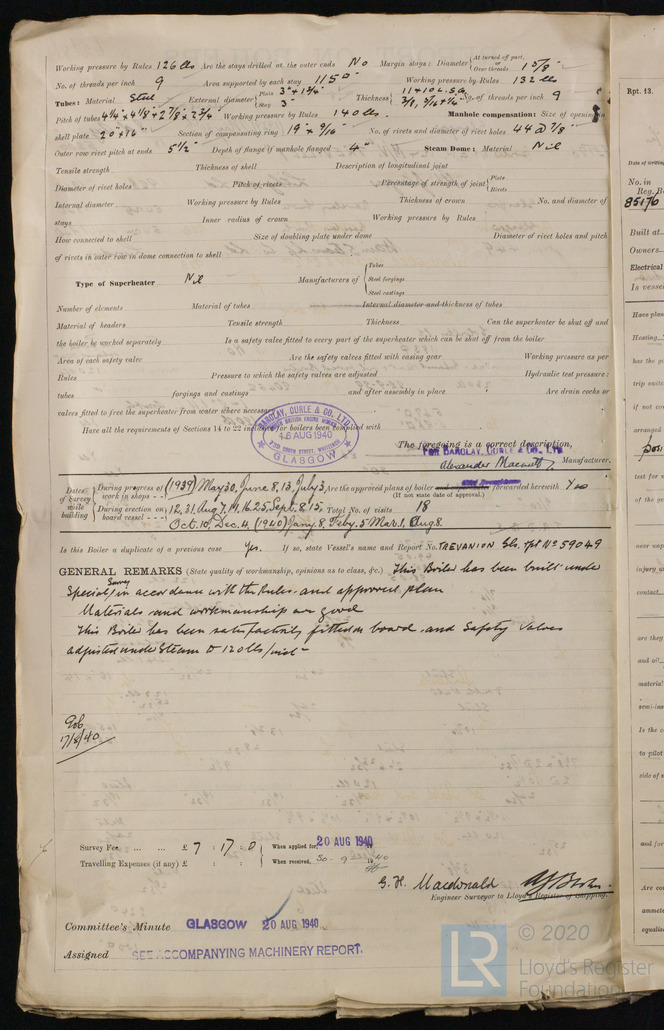 Working pressure by Rules 126 lbs Are the stays drilled at the outer ends No Margin stays: Diameter { At turned off part, or Over threads 1 5/8"
No. of threads per inch 9 Area supported by each stay 115 □" Working pressure by Rules 132 lbs
Tubes: Material Steel External diameter { Plain 3" + 1 3/4" Stay 3" Thickness { 11 + 10 L.S.G. 3/8, 5/16 + 1/4" No. of threads per inch 9
Pitch of tubes 4 1/4" x 4 1/8" + 2 7/8" x 2 3/4" Working pressure by Rules 140 lbs. Manhole compensation: Size of opening in
shell plate 20" x 16" Section of compensating ring 19" x 9/16" No. of rivets and diameter of rivet holes 44 @ 7/8"
Outer row rivet pitch at ends 5 1/2" Depth of flange if manhole flanged 4" Steam Dome: Material Nil
Tensile strength Thickness of shell Description of longitudinal joint
Diameter of rivet holes Pitch of rivets Percentage of strength of joint { Plate Rivets
Internal diameter Working pressure by Rules Thickness of crown No. and diameter of
stays Inner radius of crown Working pressure by Rules
How connected to shell Size of doubling plate under dome Diameter of rivet holes and pitch
of rivets in outer row in dome connection to shell
Type of Superheater Nil Manufacturers of { Tubes Steel forgings Steel castings
Number of elements Material of tubes Internal diameter and thickness of tubes
Material of headers Tensile strength Thickness Can the superheater be shut off and
the boiler be worked separately Is a safety valve fitted to every part of the superheater which can be shut off from the boiler
Area of each safety valve Are the safety valves fitted with easing gear Working pressure as per
Rules Pressure to which the safety valves are adjusted Hydraulic test pressure:
tubes forgings and castings and after assembly in place Are drain cocks or
valves fitted to free the superheater from water where necessary
Have all the requirements of Sections 14 to 22 for boilers been complied with
BARCLAY, CURLE & CO. LTD.
16 AUG 1940
GLASGOW
The foregoing is a correct description,
FOR BARCLAY, CURLE & CO., LTD.
Manufacturer.
Dates of Survey while building { During progress of work in shops - - (1939) May 30, June 8, 13, July 3, Are the approved plans of boiler forwarded herewith Yes
(If not state date of approval.)
During erection on board vessel - - - 12, 31, Aug 7, 14, 16, 25, Sept. 8, 15, Total No. of visits 18
Oct. 10, Dec. 4, (1940) Jany. 8, Feby. 5 Mar. 1, Aug 8.
Is this Boiler a duplicate of a previous case Yes. If so, state Vessel's name and Report No. TREVANION Gls. rpt No 59049
GENERAL REMARKS (State quality of workmanship, opinions as to class, &c.) This Boiler has been built under
Special Survey in accordance with the Rules and approved plan
Materials and workmanship are good
This Boiler has been satisfactorily fitted on board and Safety Valves
adjusted under Steam to 120 lbs/
17/8/40
Survey Fee ... ... £ 7 : 17 : 0 { When applied for, 20 AUG 1940
Travelling Expenses (if any) £ : : When received,
G. H. Macdonald
Engineer Surveyor to Lloyd's Register of Shipping.
Committee's Minute GLASGOW 20 AUG 1940
Assigned SEE ACCOMPANYING MACHINERY REPORT.
Rpt. 13.
Date of writing
No. in
Reg. B
85176
Built at
Owners
Electrical
Is vessel
Have plan
Heating
has the g
if not
arranged
test for
of the
near
injury
contact
are they
and oil
material
Is the
to pilot
side of
and for
Are
ammete
equalise
LR © 2020
Lloyd's Register
Foundation